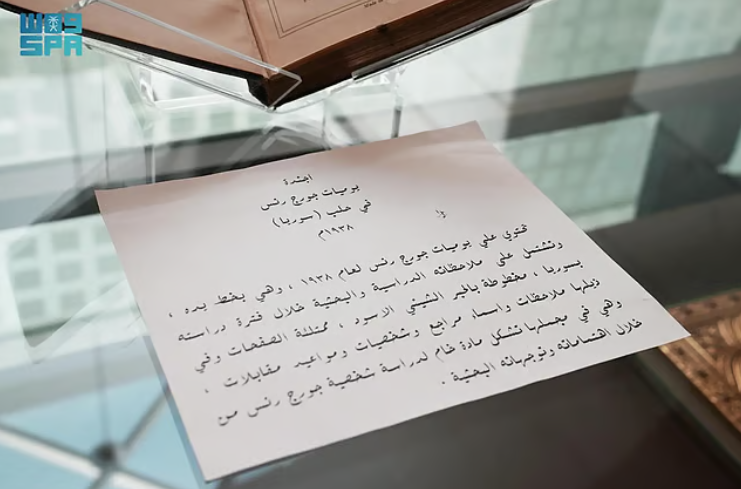 واس
SPA
Made in
اجندة
يوميات جورج رنس
في حلب (سوريا)
١٩٣٨م
تحتوي على يوميات جورج رنس لعام ١٩٣٨ ، وهي بخط يده ،
وتشتمل على ملاحظاته الدراسية والبحثية خلال فترة دراسته
بسوريا ، مخطوطة بالحبر الشيني الاسود ، ممتلئة الصفحات وفي
ذيلها ملاحظات واسماء مراجع وشخصيات ومواعيد مقابلات ،
وهي في مجملها تشكل مادة خام لدراسة شخصية جورج رنس من
خلال اهتماماته وتوجهاته البحثية .